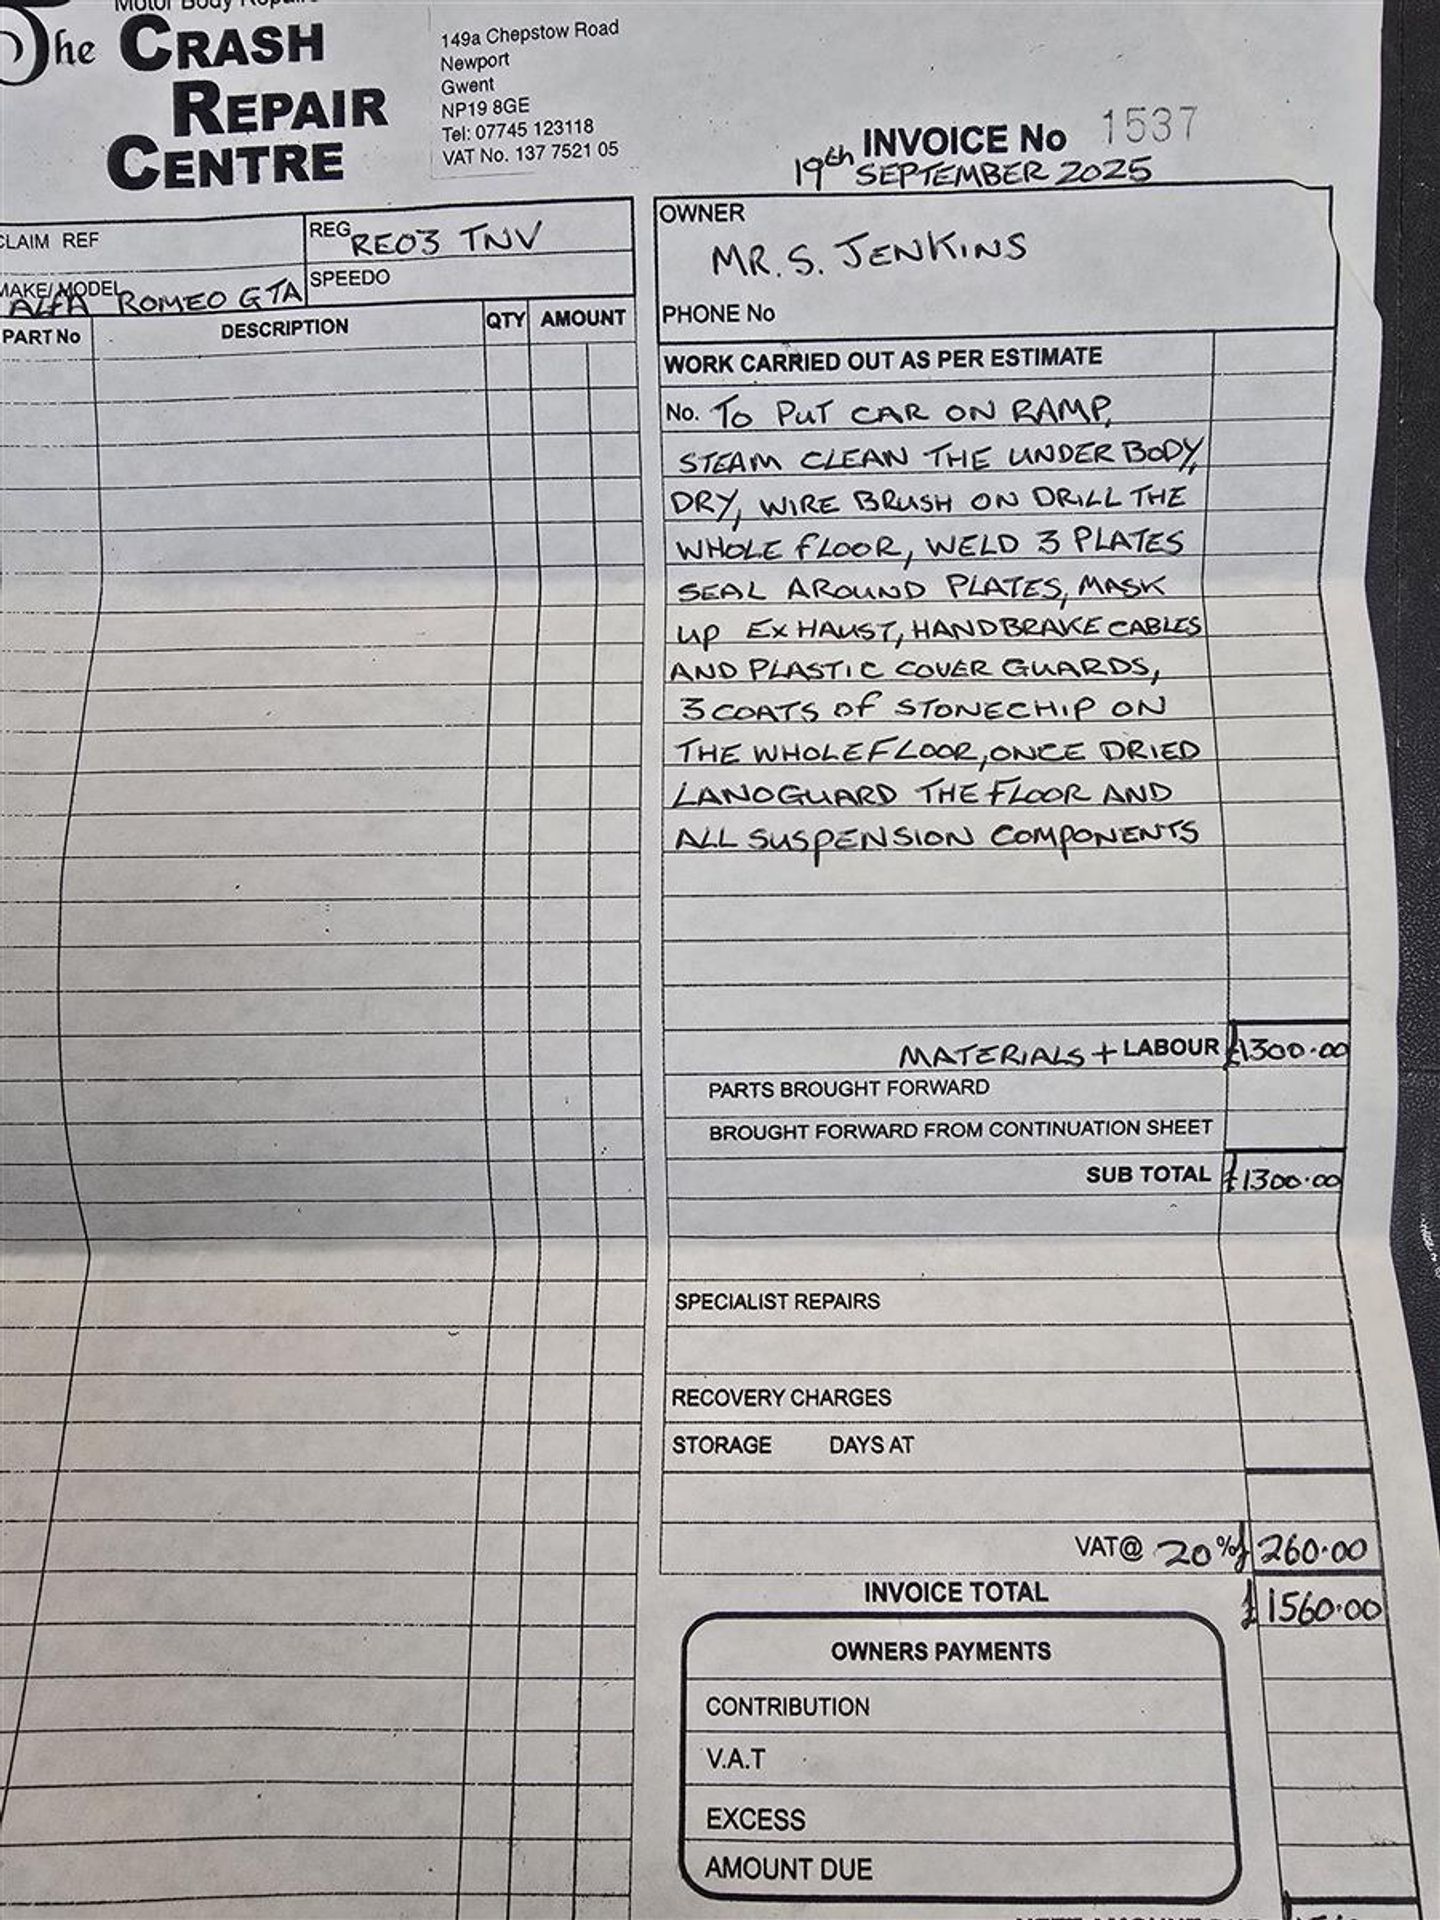 Motor Body Repairs
The CRASH
REPAIR
CENTRE
149a Chepstow Road
Newport
Gwent
NP19 8GE
Tel: 07745 123118
VAT No. 137 7521 05
INVOICE No 1537
19th SEPTEMBER 2025
CLAIM REF
REG RE03 TNV
MAKE/MODEL ALFA ROMEO GTA
SPEEDO
PART No DESCRIPTION QTY AMOUNT
OWNER
MR. S. JENKINS
PHONE No
WORK CARRIED OUT AS PER ESTIMATE
No. TO PUT CAR ON RAMP,
STEAM CLEAN THE UNDERBODY,
DRY, WIRE BRUSH ON DRILL THE
WHOLE FLOOR, WELD 3 PLATES
SEAL AROUND PLATES, MASK
UP EXHAUST, HANDBRAKE CABLES
AND PLASTIC COVER GUARDS,
3 COATS OF STONECHIP ON
THE WHOLE FLOOR, ONCE DRIED
LANOGUARD THE FLOOR AND
ALL SUSPENSION COMPONENTS
MATERIALS + LABOUR £1300.00
PARTS BROUGHT FORWARD
BROUGHT FORWARD FROM CONTINUATION SHEET
SUB TOTAL £1300.00
SPECIALIST REPAIRS
RECOVERY CHARGES
STORAGE DAYS AT
VAT@ 20% £260.00
INVOICE TOTAL £1560.00
OWNERS PAYMENTS
CONTRIBUTION
V.A.T
EXCESS
AMOUNT DUE